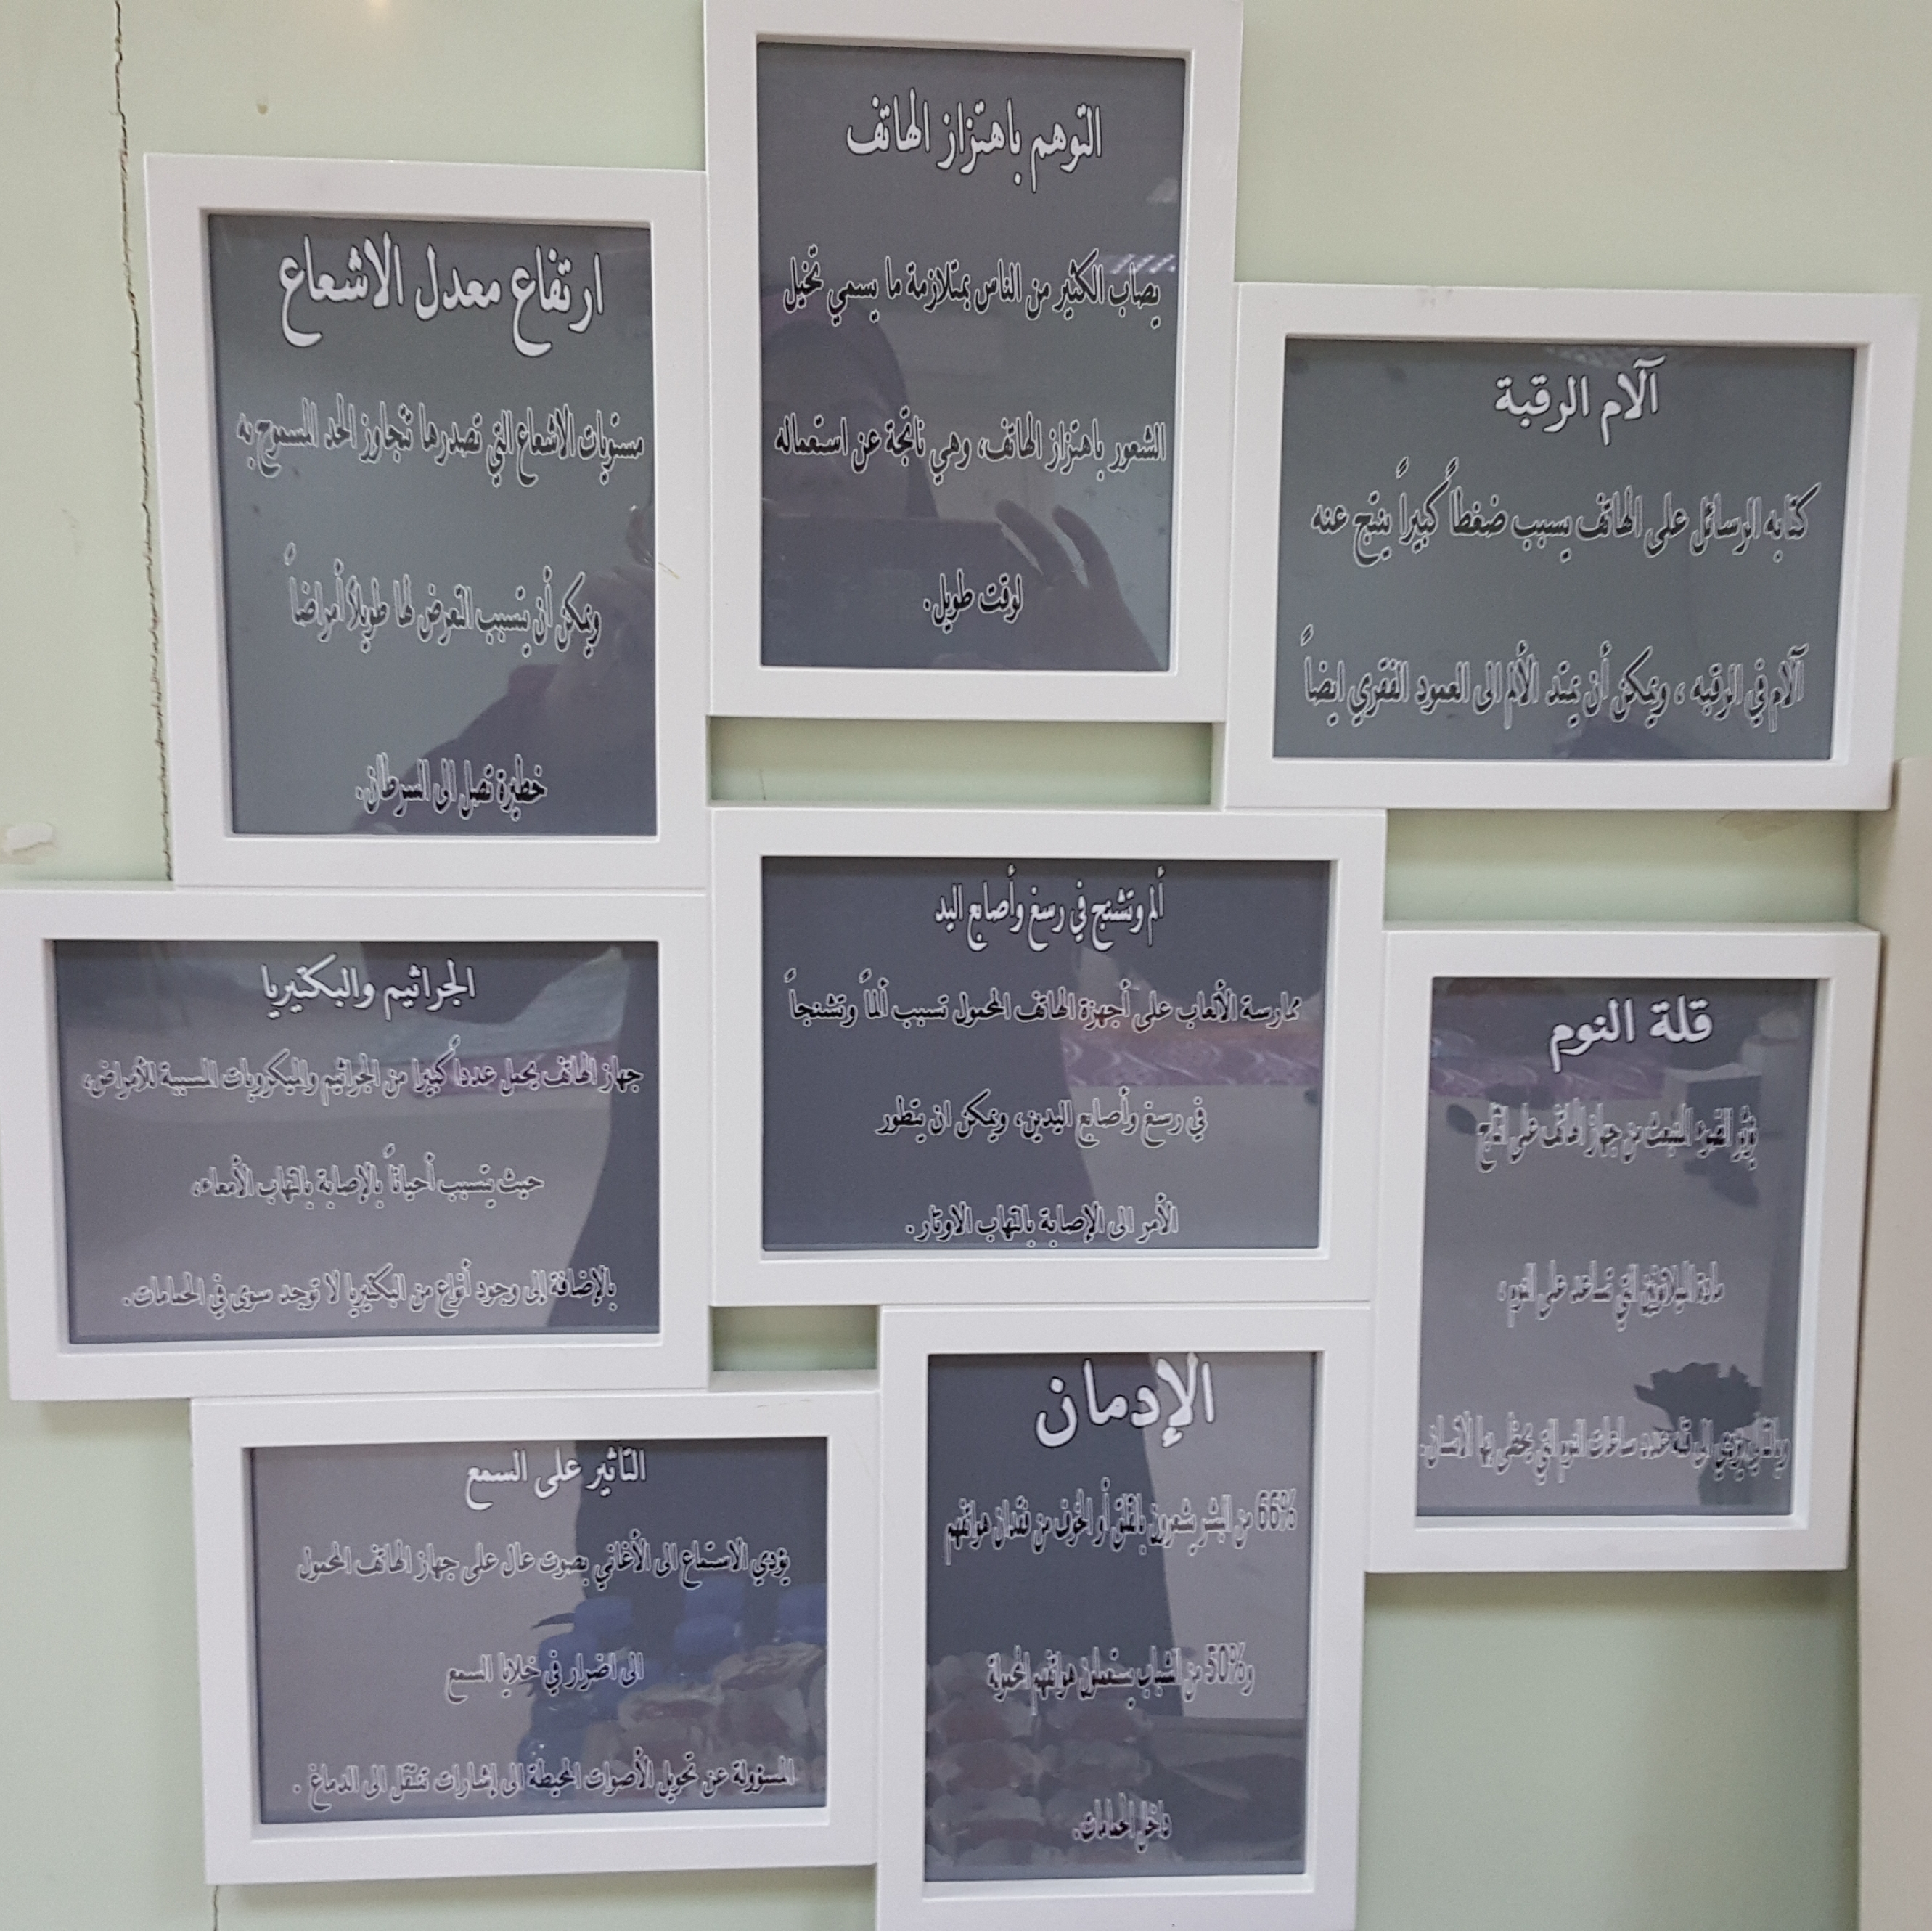 التوهم باهتزاز الهاتف
يصاب الكثير من الناس بمتلازمة ما يسمي تخيل
الشعور باهتزاز الهاتف، وهي ناتجة عن استعماله
لوقت طويل.
ارتفاع معدل الاشعاع
مستويات الاشعاع التي تصدرها تتجاوز الحد المسموح به
ويمكن أن يتسبب التعرض لها طويلاً أمراضاً
خطيرة تصل الى السرطان.
آلام الرقبة
كتابه الرسائل على الهاتف يسبب ضغطاً كبيراً ينتج عنه
آلام في الرقبه ، ويمكن أن يمتد الألم الى العمود الفقري ايضاً
ألم وتشنج في رسغ وأصابع اليد
ممارسة الألعاب على أجهزة الهاتف المحمول تسبب ألماً وتشنجاً
في رسغ وأصابع اليدين، ويمكن ان يتطور
الأمر الى الإصابة بالتهاب الاوتار.
الجراثيم والبكتيريا
جهاز الهاتف يحمل عدداً كبيرا من الجراثيم والميكروبات المسببة للأمراض،
حيث يتسبب أحياناً بالإصابة بالتهاب الأمعاء،
بالإضافة إلى وجود أنواع من البكتيريا لا توجد سوى في الحمامات.
قلة النوم
يؤثر الضوء المنبعث من جهاز الهاتف على انتاج
مادة الميلاتونين التي تساعد على النوم ،
وبالتالي يؤدي الى قلة عدد ساعات النوم التي يحظى بها الانسان.
الإدمان
66% من البشر يشعرون بالقلق أو الخوف من فقدان هواتفهم
و50% من الشباب يستعملون هواتفهم المحمولة
داخل الحمامات.
التأثير على السمع
يؤدي الاستماع الى الأغاني بصوت عال على جهاز الهاتف المحمول
الى اضرار في خلايا السمع
المسؤولة عن تحويل الأصوات المحيطة الى إشارات تنتقل الى الدماغ .